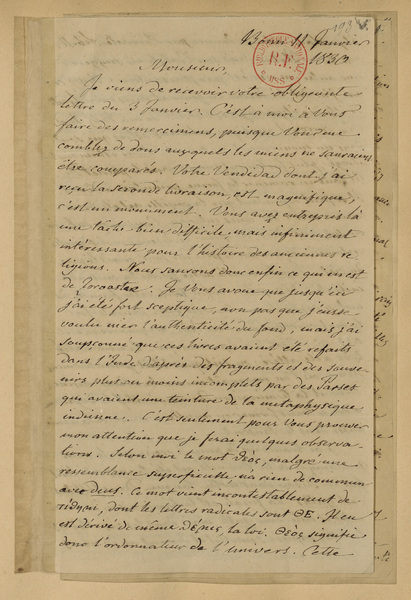 Bonn 11 Janvier
1830
BIBLIOTHÈQUE NATIONALE
R.F.
MSS
Monsieur
Je viens de recevoir votre obligeante
lettre du 3 Janvier. C'est à moi à Vous
faire des remercimens, puisque Vous me
comblez de dons auxquels les miens ne sauraient
être comparés. Votre Vendidad dont j'ai
reçu la seconde livraison, est magnifique,
c'est un monument. Vous avez entrepris là
une tache bien difficile, mais infiniment
intéressante pour l'histoire des anciennes re-
ligions. Nous saurons donc enfin ce qui en est
de Zoroastre. Je Vous avoue que jusqu'ici
j'ai été fort sceptique, non pas que j'eusse
voulu nier l'authenticité du fond, mais j'ai
soupçonné que ces livres avaient été refaits
dans l'Inde d'après des fragments et des souve-
nirs plus ou moins incomplets par des Parses
qui avaient une teinture de la metaphysique
indienne. C'est seulement pour Vous prouver
mon attention que je ferai quelques observa-
tions. Selon moi le mot θεὸς, malgré une
ressemblance superficielle, n'a rien de commun
avec deus. Ce mot vient incontestablement de
τίθημι, dont les lettres radicales sont ΘΕ. Il en
est dérivé de même θέμις, la loi. Θεὸς signifie
donc l'ordonnateur de l'univers. Cette